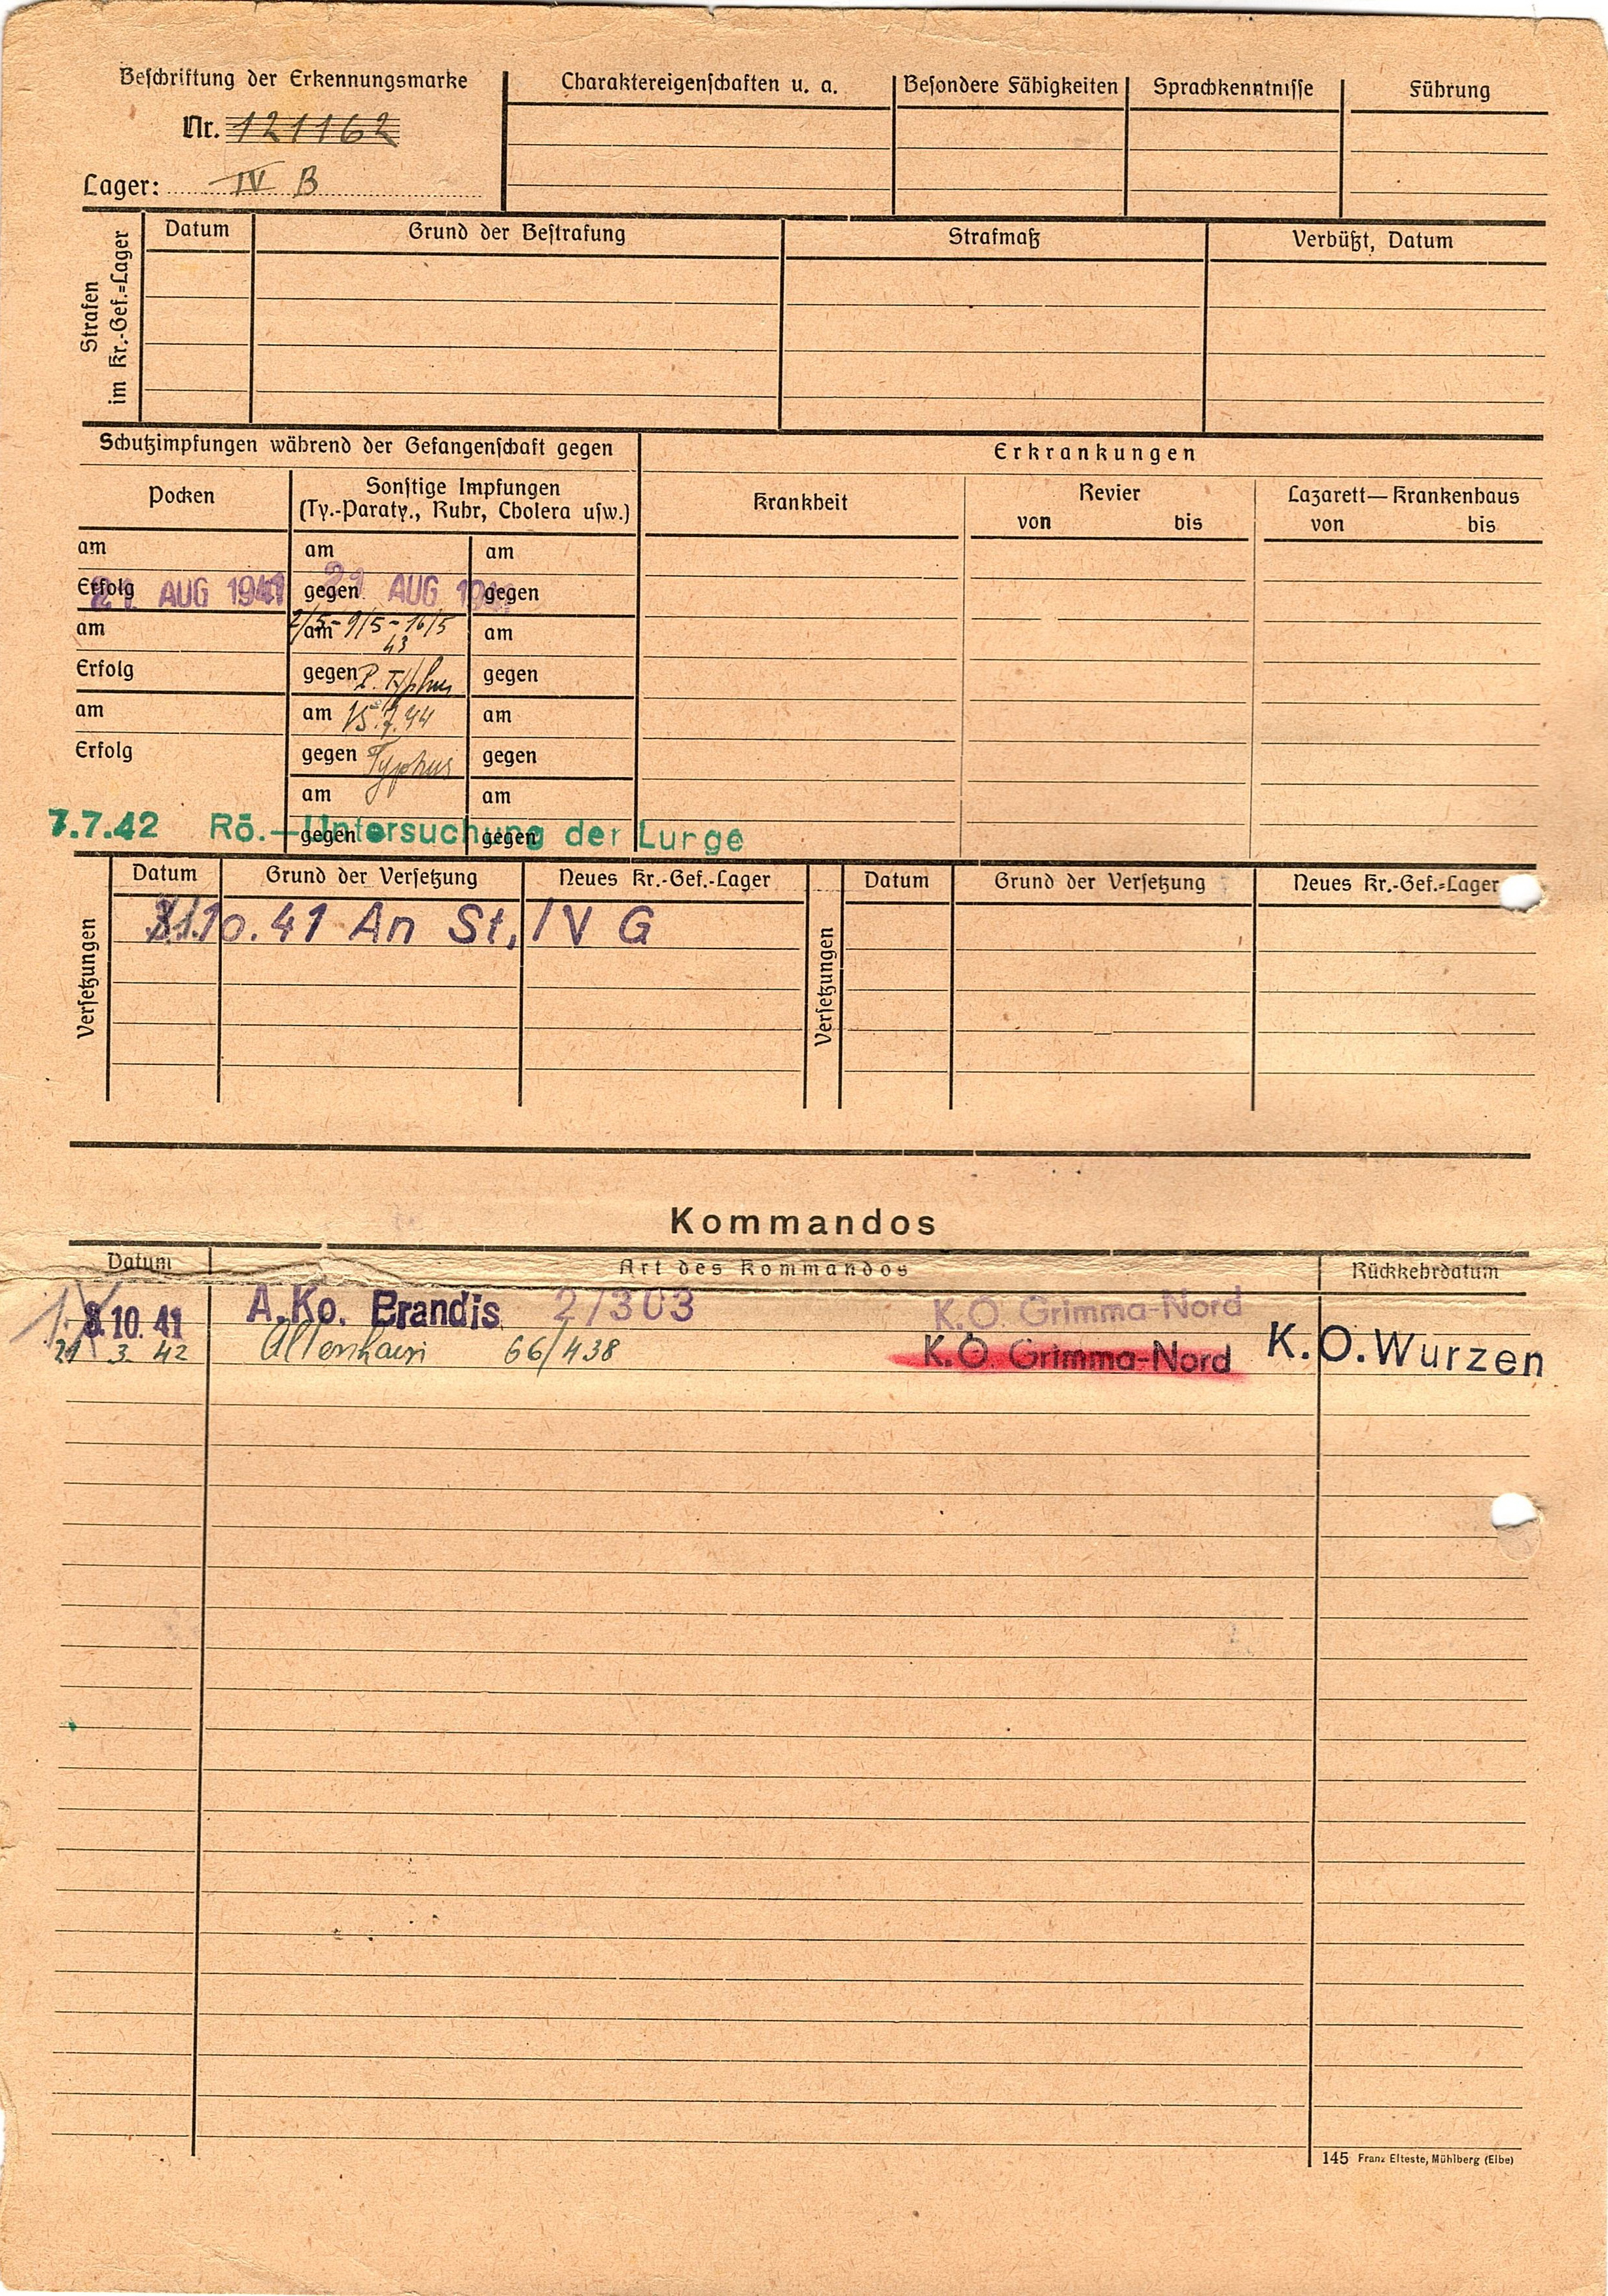 Beschriftung der Erkennungsmarke
Nr. 121162
Lager: IV B
Charaktereigenschaften u. a.
Besondere Fähigkeiten
Sprachkenntnisse
Führung
Strafen
im Kr.-Gef.=Lager
Datum
Grund der Bestrafung
Strafmaß
Verbüßt, Datum
Schutzimpfungen während der Gefangenschaft gegen
Erkrankungen
Pocken
Sonstige Impfungen
(Ty.-Paraty., Ruhr, Cholera usw.)
Krankheit
Revier
von bis
Lazarett—Krankenhaus
von bis
am am am
Erfolg 21 AUG 1941 gegen 21 AUG 1941 gegen
am am 2/5-9/5-16/5 am
43
Erfolg gegen P. Typhus gegen
am am 15.7.44 am
Erfolg gegen Typhus gegen
am am
7.7.42 Rö.-Untersuchung der Lunge
gegen gegen
Versetzungen
Datum Grund der Versetzung Neues Kr.-Gef.-Lager
10.41 An St. IV G
Versetzungen
Datum Grund der Versetzung Neues Kr.-Gef.=Lager
Kommandos
Datum Art des Kommandos Rückkehrdatum
10. 41 A.Ko. Brandis 2/303 K.O. Grimma-Nord
21 3. 42 Altenhain 66/438 K.O. Grimma-Nord K.O. Wurzen
145 Franz Elteste, Mühlberg (Elbe)